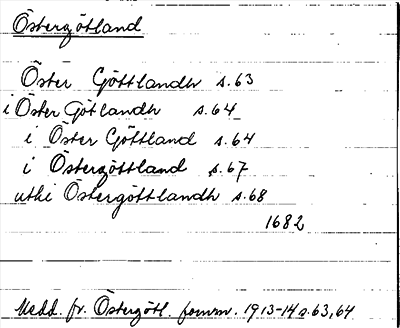 Östergötland
Öster Göttlandh s.63
i Öster Götlandh s.64
i Öster Göttland s.64
i Östergöttland s.67
uthi Östergöttlandh s.68
1682
Medd. fr. Östergötl. fornm. 1913-14 s.63,64